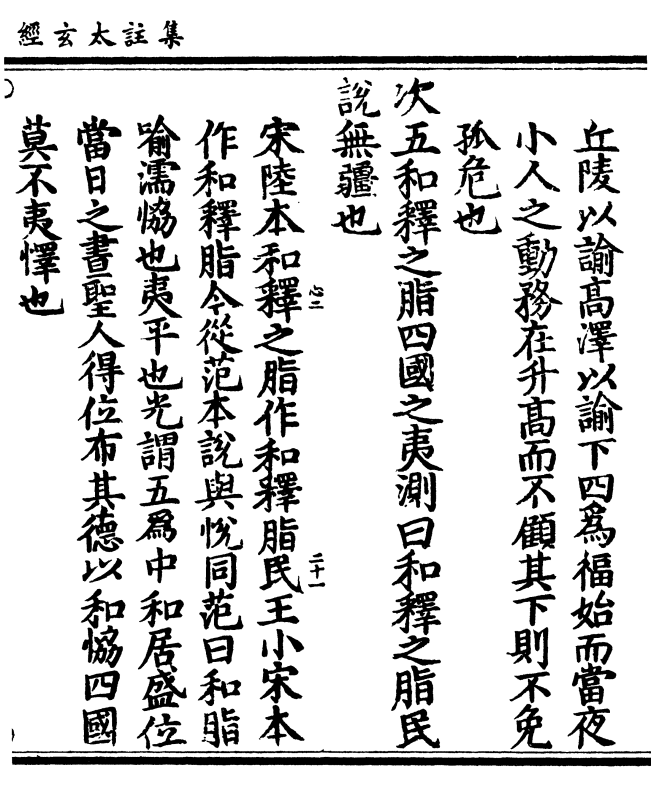 集註太玄經
丘陵以諭高澤以諭下四爲福始而當夜
小人之動務在升高而不顧其下則不免
孤危也
次五和釋之脂四國之夷測曰和釋之脂民
說無疆也
心二
二十一
宋陸本和釋之脂作和釋脂民王小宋本
作和釋脂今從范本說與悅同范曰和脂
喻濡恊也夷平也光謂五爲中和居盛位
當日之晝聖人得位布其德以和恊四國
莫不夷懌也